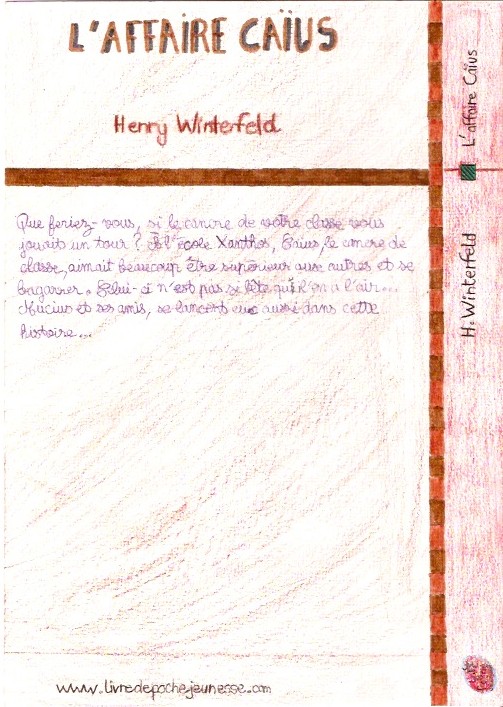 L'AFFAIRE CAÏUS
Henry Winterfeld
Que feriez-vous, si le cancre de votre classe vous
jouait un tour ? A l'école Xanthos, Caïus, le cancre de
classe, aimait beaucoup être supérieur aux autres et se
bagarrer. Celui-ci n'est pas si bête qu'il en a l'air...
Mucius et ses amis, se lancent eux aussi dans cette
histoire...
www.livredepochejeunesse.com
L'affaire Caïus
H. Winterfeld